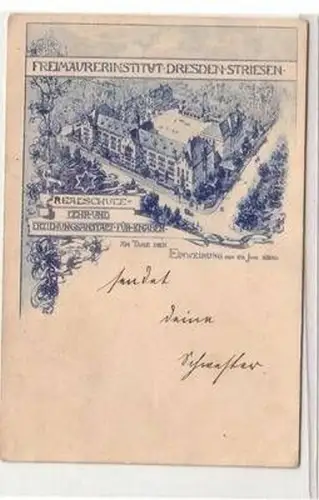 FREIMAURERINSTITUT·DRESDEN-STRIESEN·
REALSCHULE-
LEHR-UND
ERZIEHUNGSANSTALT-FÜR-KNABEN
AM TAGE DER
EINWEIHUNG
sendet
deine
Schwester.